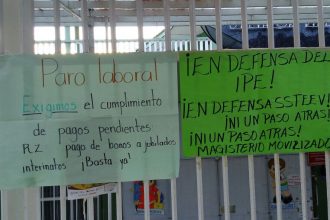 Paro laboral
Exigimos el cumplimiento
de pagos pendientes
RZ pago de bonos a jubilados
interinatos ¡Basta ya!
¡EN DEFENSA DEL
IPE!
¡EN DEFENSA SSTEEV!
¡NI UN PASO ATRAS!
¡NI UN PASO ATRAS!
MAGISTERIO MOVILIZADO